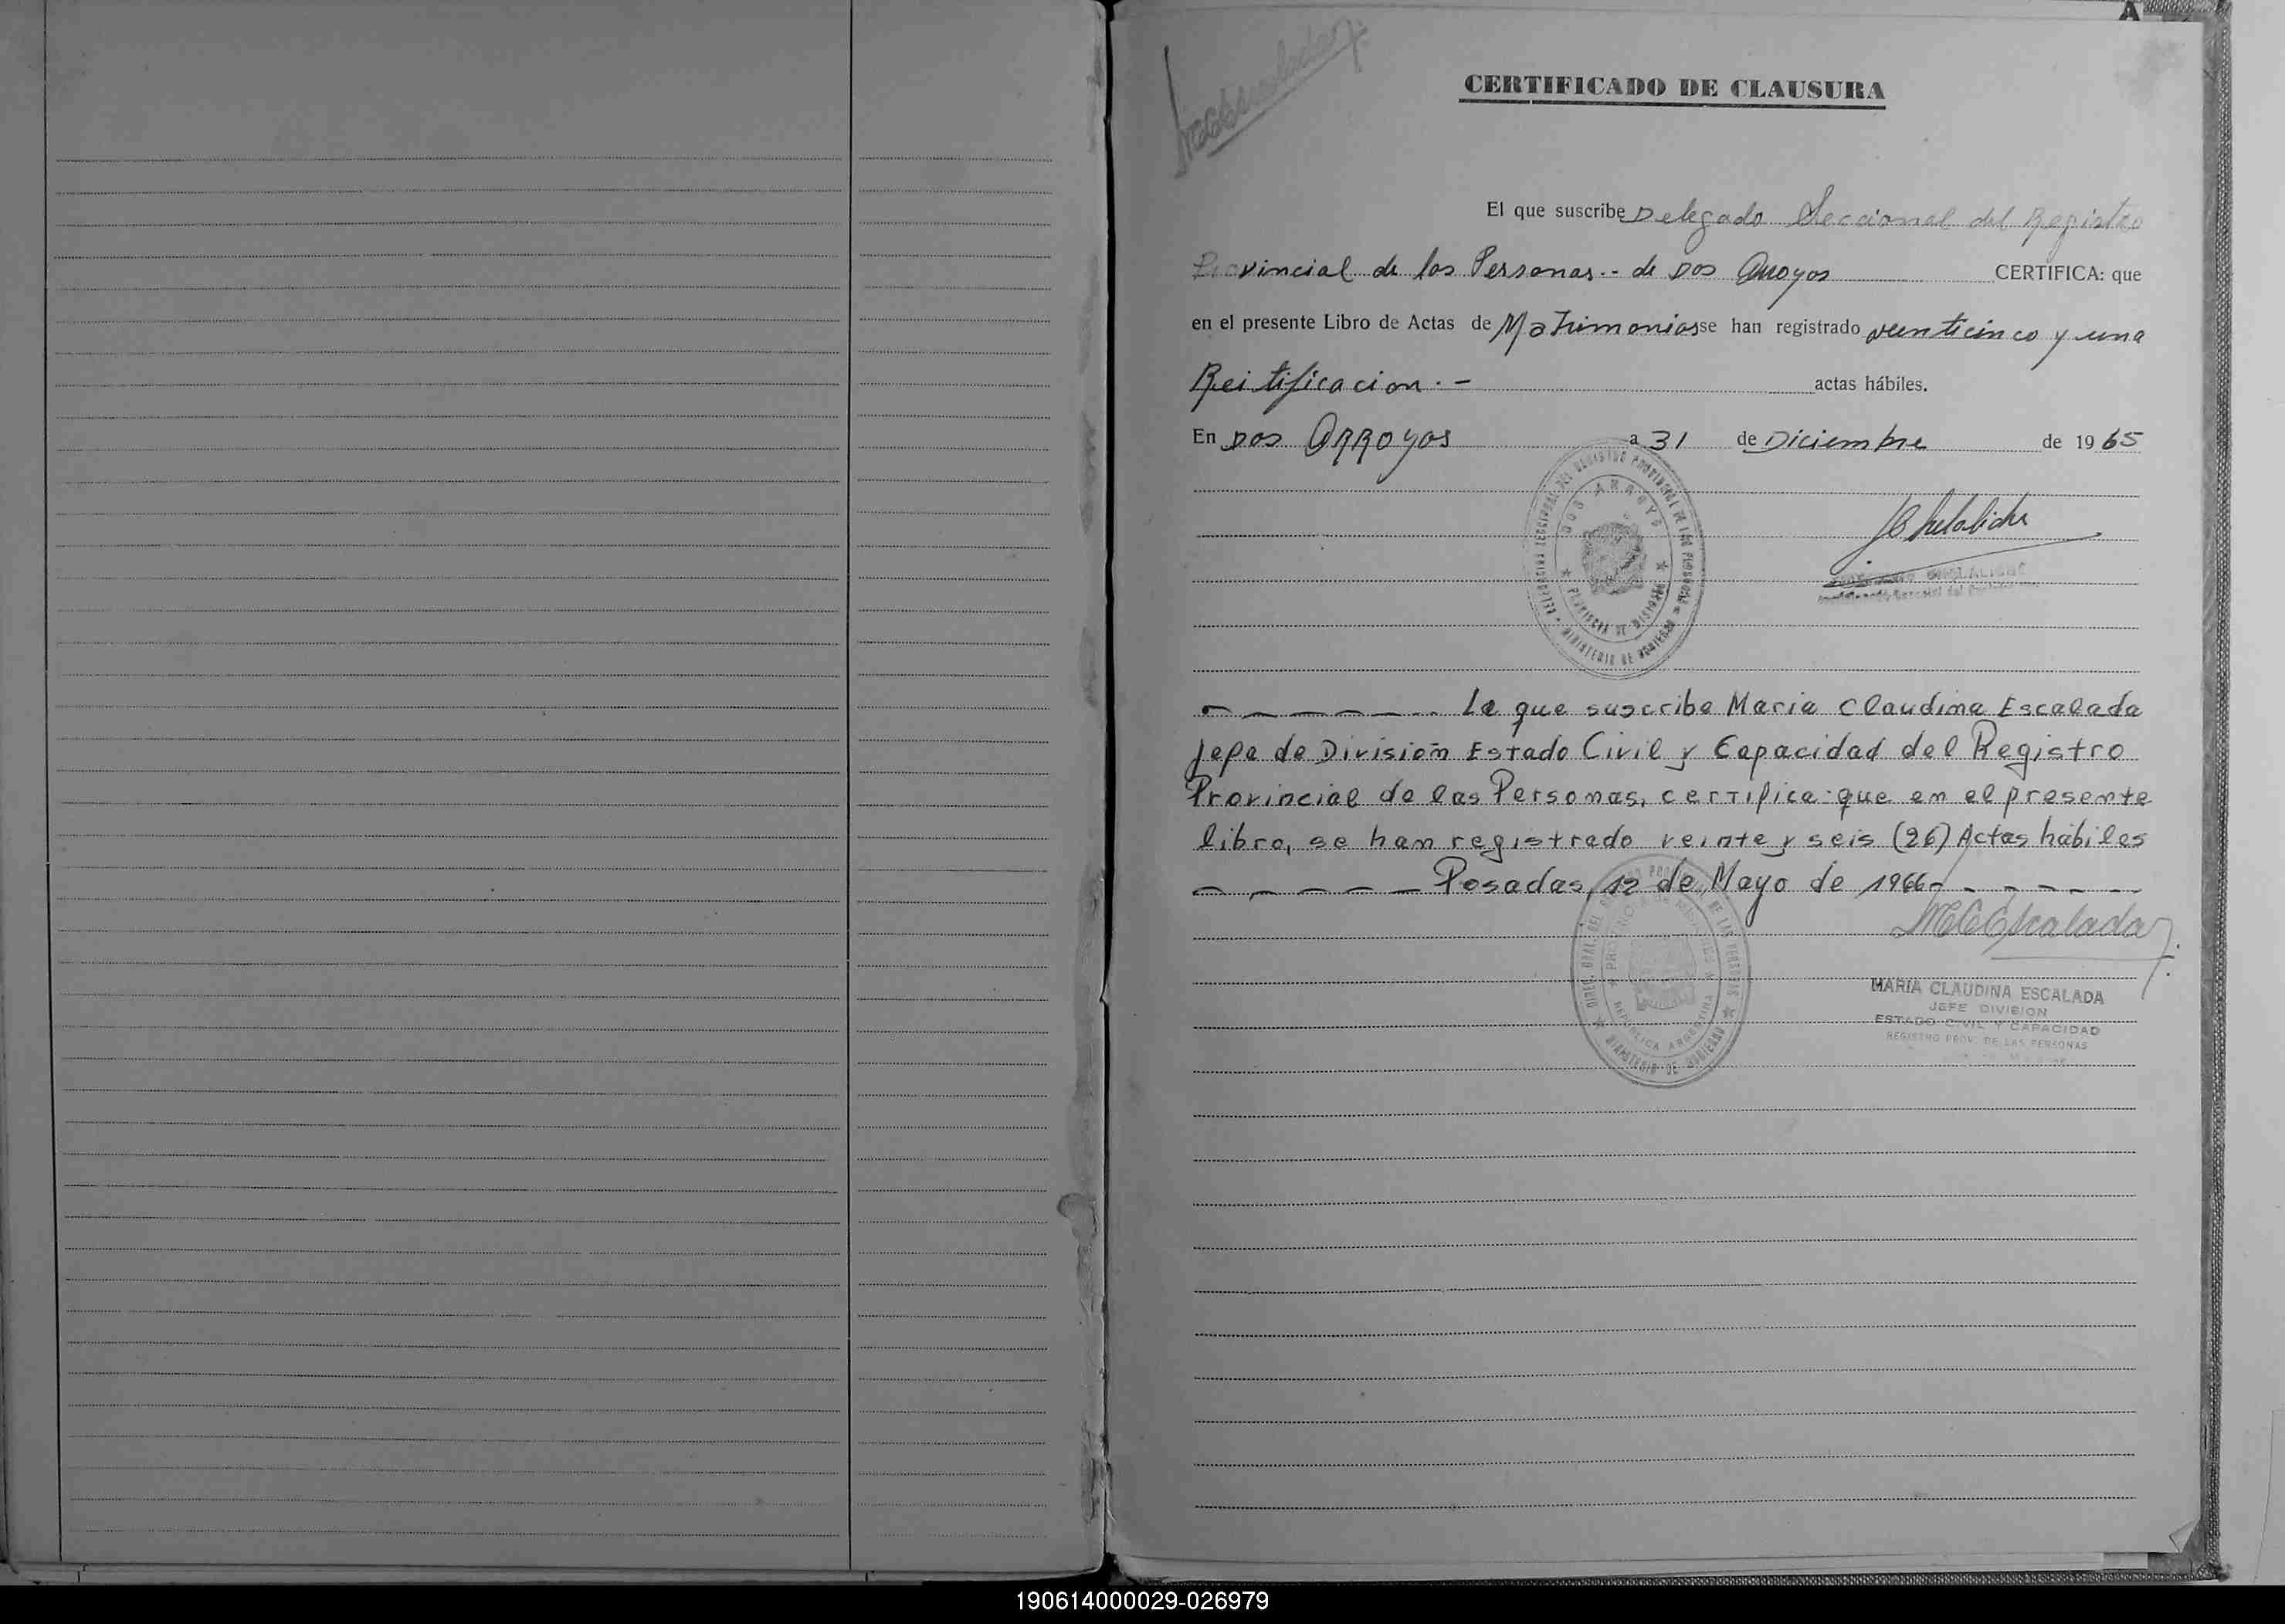 CERTIFICADO DE CLAUSURA
El que suscribe Delegado Seccional del Registro
Provincial de las Personas.- de Dos Arroyos CERTIFICA: que
en el presente Libro de Actas de Matrimonios se han registrado veinticinco y una
Reitificacion.- actas hábiles.
En Dos Arroyos a 31 de Diciembre de 1965
DOS ARROYOS
PROVINCIA DE MISIONES
MINISTERIO DE GOBIERNO
La que suscribe Maria Claudina Escalada
Jefa de División Estado Civil y Capacidad del Registro
Provincial de las Personas, certifica: que en el presente
libro, se han registrado veinte y seis (26) Actas hábiles
Posadas, 12 de Mayo de 1966-
MCEscalada
REPUBLICA ARGENTINA
MINISTERIO DE GOBIERNO
MARIA CLAUDINA ESCALADA
JEFE DIVISION
ESTADO CIVIL Y CAPACIDAD
REGISTRO PROV. DE LAS PERSONAS
190614000029-026979